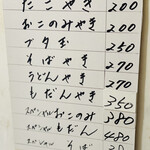 たこやき 200
おこのみやき 200
ブタ玉 250
そばやき 270
うどんやき 270
もだんやき 350
スペシャルおこのみ 380
スペシャルもだん 480
スペシャル そば